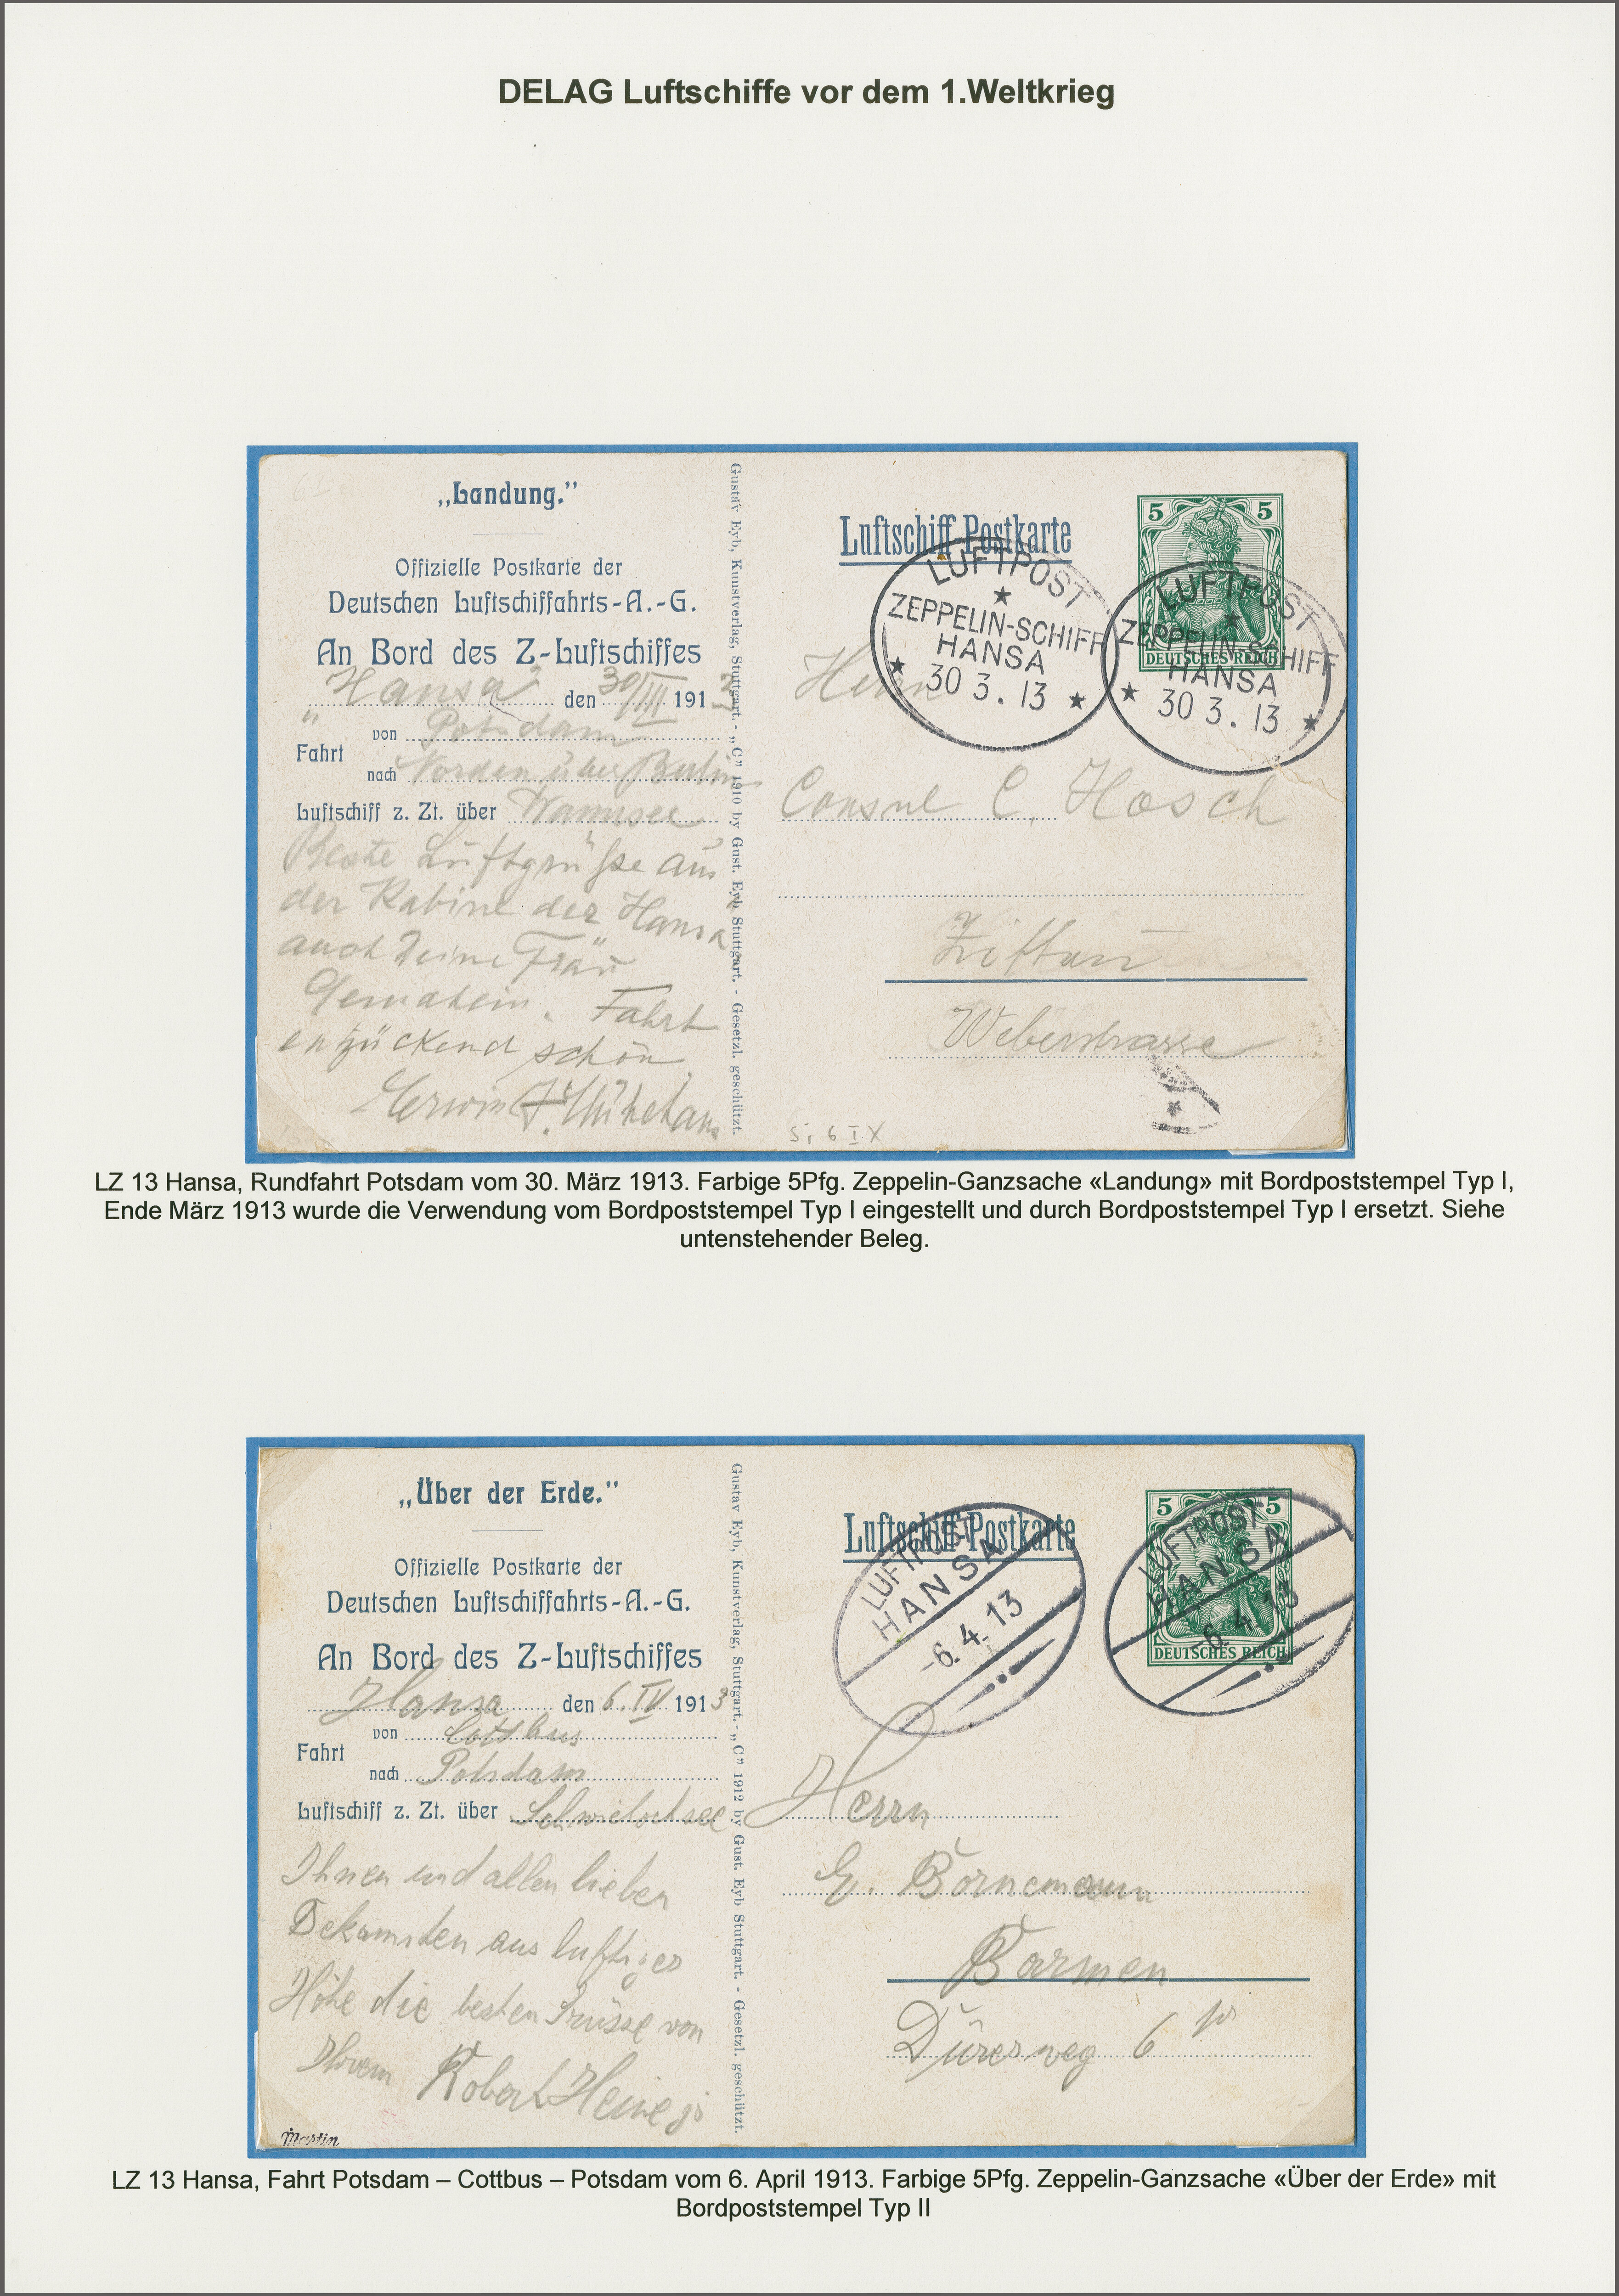 DELAG Luftschiffe vor dem 1.Weltkrieg
„Landung."
Offizielle Postkarte der
Deutschen Luftschiffahrts-A.-G.
An Bord des Z-Luftschiffes
"Hansa" den 30/III 1913
Fahrt
von Potsdam
nach Norden über Berlin
Luftschiff z. Zt. über Wannsee
Beste Luftgrüsse aus
der Kabine der Hansa
auch Deine Frau
Gemahlin. Fahrt
entzückend schön
Erwin
Gustav Eyb, Kunstverlag, Stuttgart. - „C" 1910 by Gust. Eyb Stuttgart. - Gesetzl. geschützt.
Luftschiff-Postkarte
5 5
DEUTSCHES REICH
LUFTPOST
ZEPPELIN-SCHIFF
HANSA
30 3. 13
LUFTPOST
ZEPPELIN-SCHIFF
HANSA
30 3. 13
Herrn
Consul C. Hosch
Zittau
Weberstrasse
Si 6 IX
LZ 13 Hansa, Rundfahrt Potsdam vom 30. März 1913. Farbige 5Pfg. Zeppelin-Ganzsache «Landung» mit Bordpoststempel Typ I,
Ende März 1913 wurde die Verwendung vom Bordpoststempel Typ I eingestellt und durch Bordpoststempel Typ I ersetzt. Siehe
untenstehender Beleg.
„Über der Erde."
Offizielle Postkarte der
Deutschen Luftschiffahrts-A.-G.
An Bord des Z-Luftschiffes
Hansa den 6. IV 1913
Fahrt
von Cottbus
nach Potsdam
Luftschiff z. Zt. über Schwielochsee
Ihnen und allen lieben
Bekannten aus luftiger
Höhe die besten Grüsse von
Ihrem Robert Heine jr
Martin
Gustav Eyb, Kunstverlag, Stuttgart. - „C" 1912 by Gust. Eyb Stuttgart. - Gesetzl. geschützt.
Luftschiff-Postkarte
5 5
DEUTSCHES REICH
LUFTPOST
HANSA
-6.4.13
LUFTPOST
HANSA
-6.4.13
Herrn
E. Bornemann
Barmen
Dürerweg 6
LZ 13 Hansa, Fahrt Potsdam – Cottbus – Potsdam vom 6. April 1913. Farbige 5Pfg. Zeppelin-Ganzsache «Über der Erde» mit
Bordpoststempel Typ II